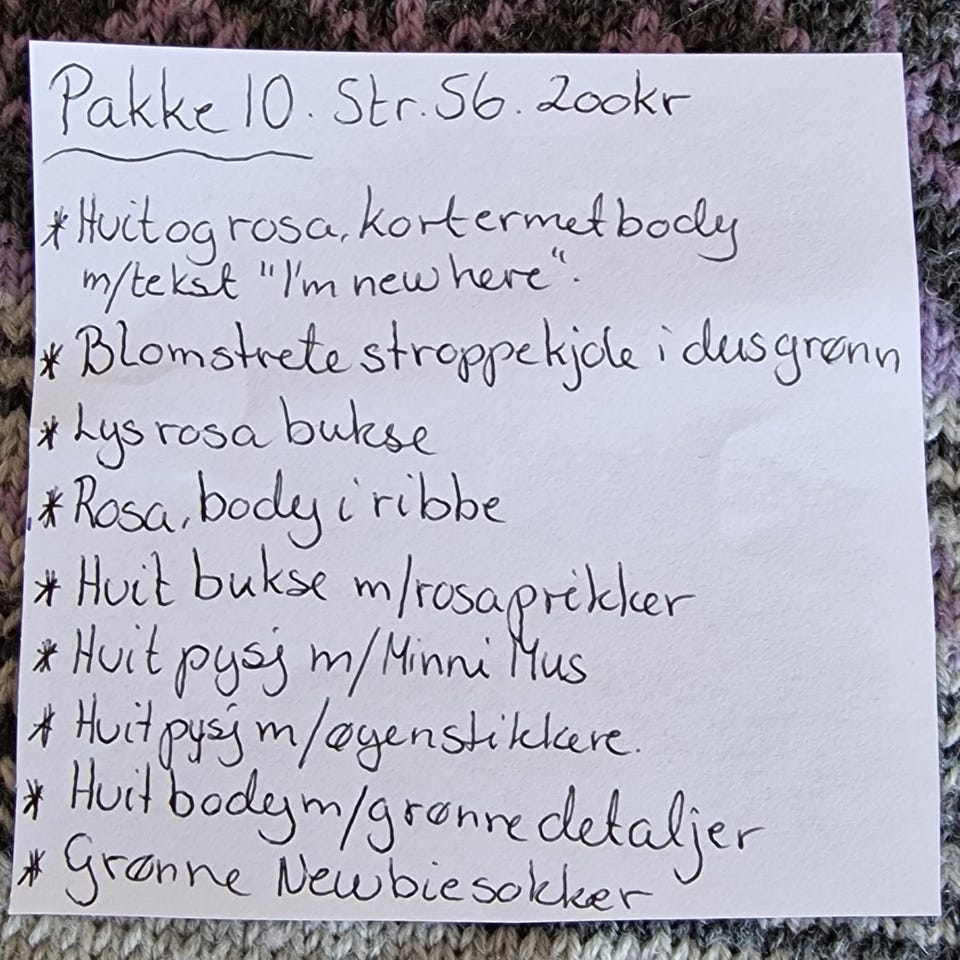 Pakke 10. Str. 56. 200kr
* Hvit og rosa, kortermet body
m/tekst "I'm new here".
* Blomstrete stroppekjole i dus grønn
* Lys rosa bukse
* Rosa, body i ribbe
* Hvit bukse m/rosa prikker
* Hvit pysj m/Minni Mus
* Hvit pysj m/øyenstikkere.
* Hvit body m/grønne detaljer
* Grønne Newbie sokker